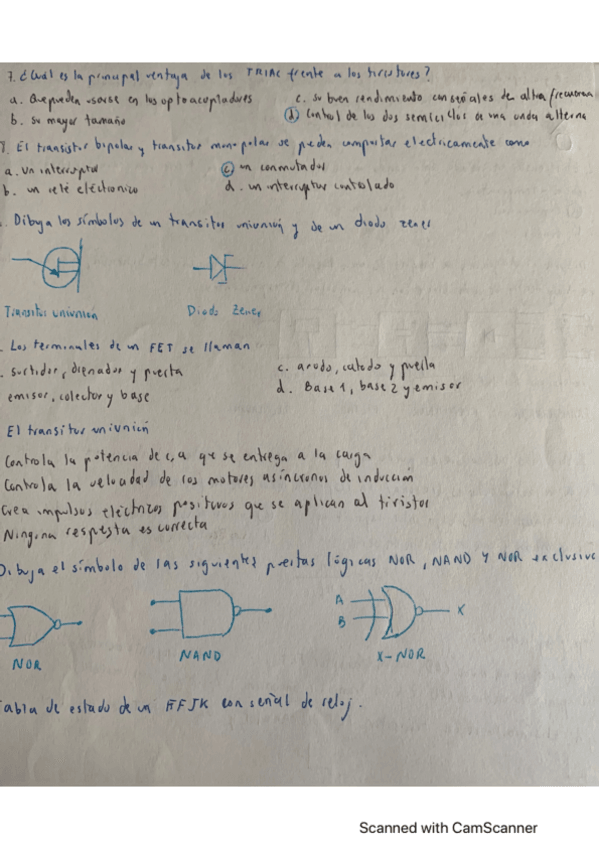 7. ¿Cuál es la principal ventaja de los TRIAC frente a los tiristores?
a. Que pueden usarse en los optoacopladores
c. su buen rendimiento con señales de alta frecuencia
b. su mayor tamaño
d) control de los dos semiciclos de una onda alterna
8. El transistor bipolar y transistor monopolar se pueden comportar electricamente como
a. un interruptor
c) un conmutador
b. un relé eléctronico
d. un interruptor controlado
. Dibuja los símbolos de un transistor uniunión y de un diodo zener
Transistor uniunión
Diodo Zener
. Los terminales de un FET se llaman
. surtidor, drenador y puerta
c. anodo, catodo y puerta
emisor, colector y base
d. Base 1, base 2 y emisor
El transistor uniunión
Controla la potencia de c,a que se entrega a la carga
Controla la velocidad de los motores asíncronos de inducción
Crea impulsos eléctricos positivos que se aplican al tiristor
Ninguna respuesta es correcta
Dibuja el símbolo de las siguientes puertas lógicas NOR, NAND y NOR exclusive
A
B
X
NOR
NAND
X-NOR
Tabla de estado de un FFJK con señal de reloj.
Scanned with CamScanner